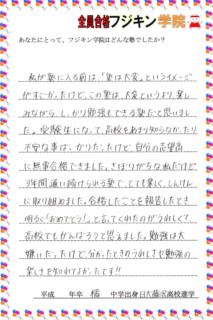 全員合格フジキン学院
あなたにとって、フジキン学院はどんな塾でしたか？
私が塾に入る前は、「塾は大変」というイメージ
がすごかったけど、この塾は、大変というより、楽し
みながら、しっかり勉強もできる塾だと思いまし
た。受験生になって、高校もあまり知らなかったり
不安な事ばっかりだったけど、自分の志望高
に無事合格できました。さぼりがちな私だけど
3年間通い続けられる塾で、とても楽しく、しんけん
に取り組めました。合格したことを報告したとき
明るく「おめでとう!」と言ってくれたのがうれしくて、
高校でもがんばろうと思えました。勉強は大
嫌いだったけど、分かったときのうれしさや勉強の
楽しさを知れてよかったです!!
平成 年卒 橘 中学出身 日大藤沢高校進学